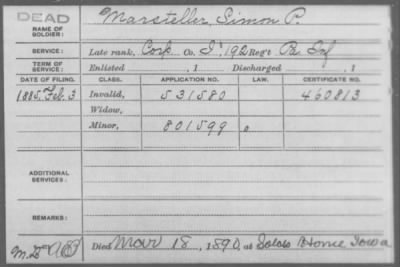 DEAD
NAME OF SOLDIER: Marsteller, Simon P.
SERVICE: Late rank, Corp Co. I, 192 Reg't Pa Inf
TERM OF SERVICE: Enlisted , 1 Discharged , 1
DATE OF FILING. CLASS. APPLICATION NO. LAW. CERTIFICATE NO.
1885, Feb. 3 Invalid, 531580 460813
Widow,
Minor, 801599
ADDITIONAL SERVICES:
REMARKS:
Died Mar 18, 1890, at Soldrs Home Iowa